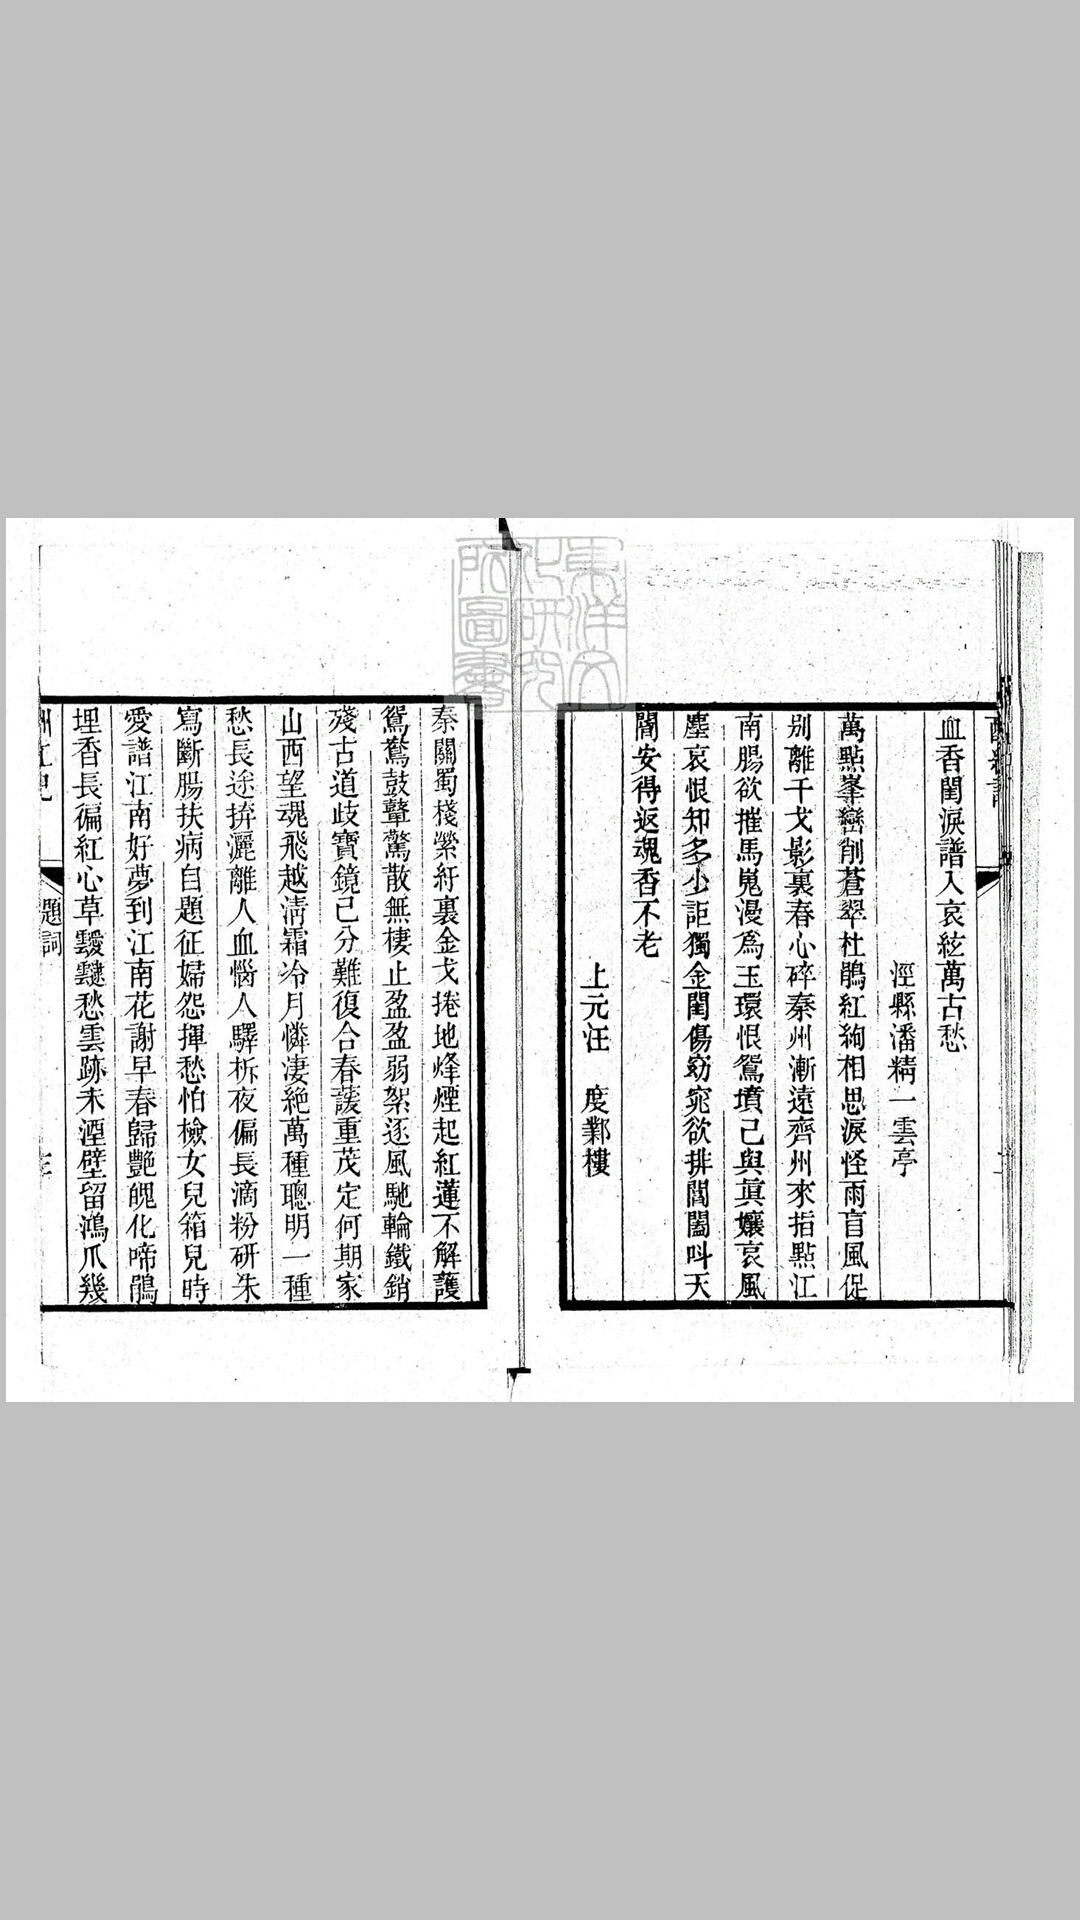 血香閨淚譜入哀絃萬古愁
涇縣潘精一雲亭
萬點峯巒削蒼翠杜鵑紅絢相思淚怪雨盲風促
别離干戈影裏春心碎秦州漸遠齊州來指點江
南腸欲摧馬嵬漫爲玉環恨鴛墳已與眞孃哀風
塵哀恨知多少詎獨金閨傷窈窕欲排閶闔叫天
閽安得返魂香不老
上元汪 度鄴樓
秦關蜀棧縈紆裏金戈捲地烽煙起紅蓮不解護
鴛鴦鼓鼙驚散無棲止盈盈弱絮逐風馳輪鐵銷
殘古道歧寶鏡已分難復合春蘐重茂定何期家
山西望魂飛越淸霜冷月憐凄絶萬種聰明一種
愁長途拚灑離人血惱人驛柝夜偏長滴粉硏朱
寫斷腸扶病自題征婦怨揮愁怕檢女兒箱兒時
愛譜江南好夢到江南花謝早春歸艷魄化啼鵑
埋香長徧紅心草靉靆愁雲跡未湮壁留鴻爪幾
題詞